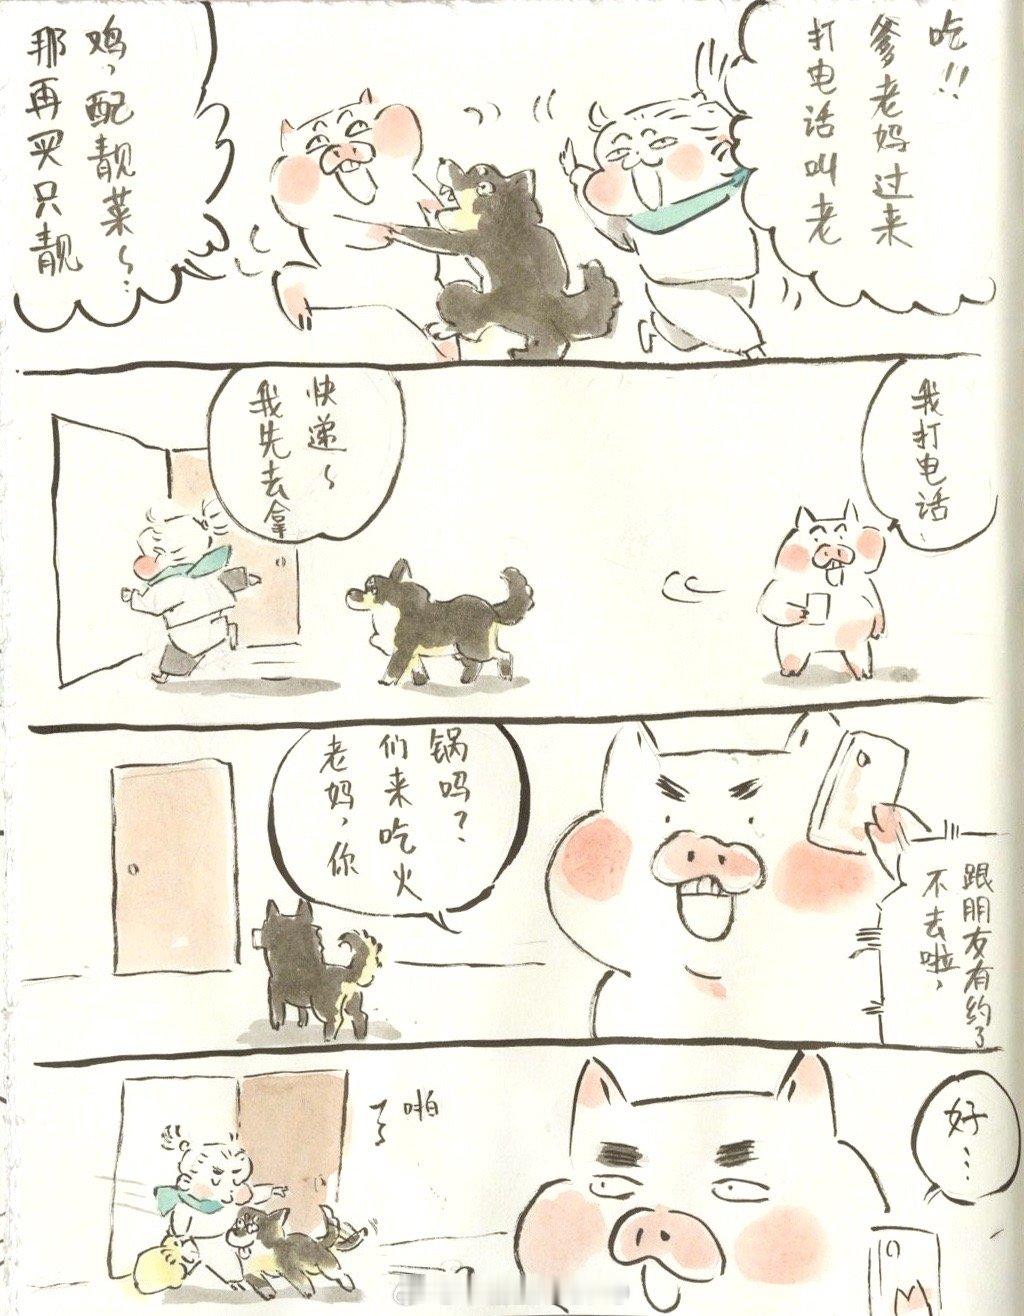 那再买只靓
鸡，配靓菜～
打电话叫老
爹老妈过来
吃!!
我先去拿
快递～
我打电话
老妈，你
们来吃火
锅吗？
不去啦，
跟朋友有约了
啪
好…